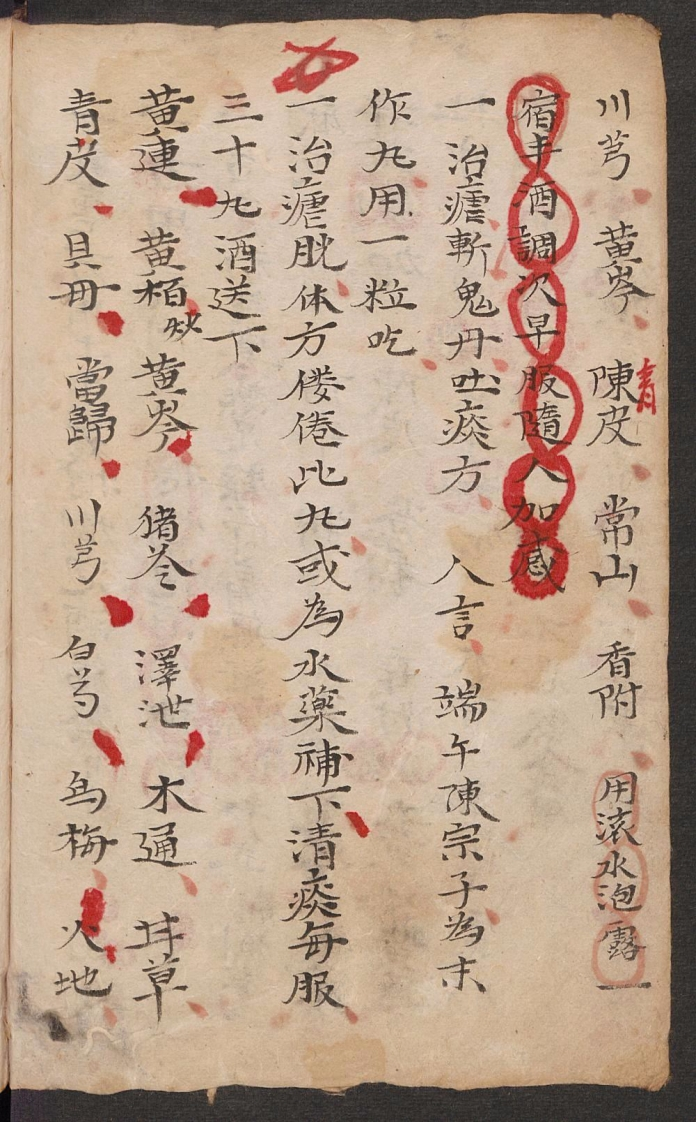 川芎 黄岑 陳皮 青 常山 香附 用滚水泡露一
宿 酒調次早服隨人加感
一治瘧斬鬼丹吐痰方 人言 端午陳宗子為末
作丸用一粒吃
一治瘧脱体方倭倦此丸或為水藥補下清痰每服
三十丸酒送下
黄連 黄栢炒 黄岑 猪苓 澤泄 木通 甘草
青皮 貝毋 當歸 川芎 白芍 烏梅 火地